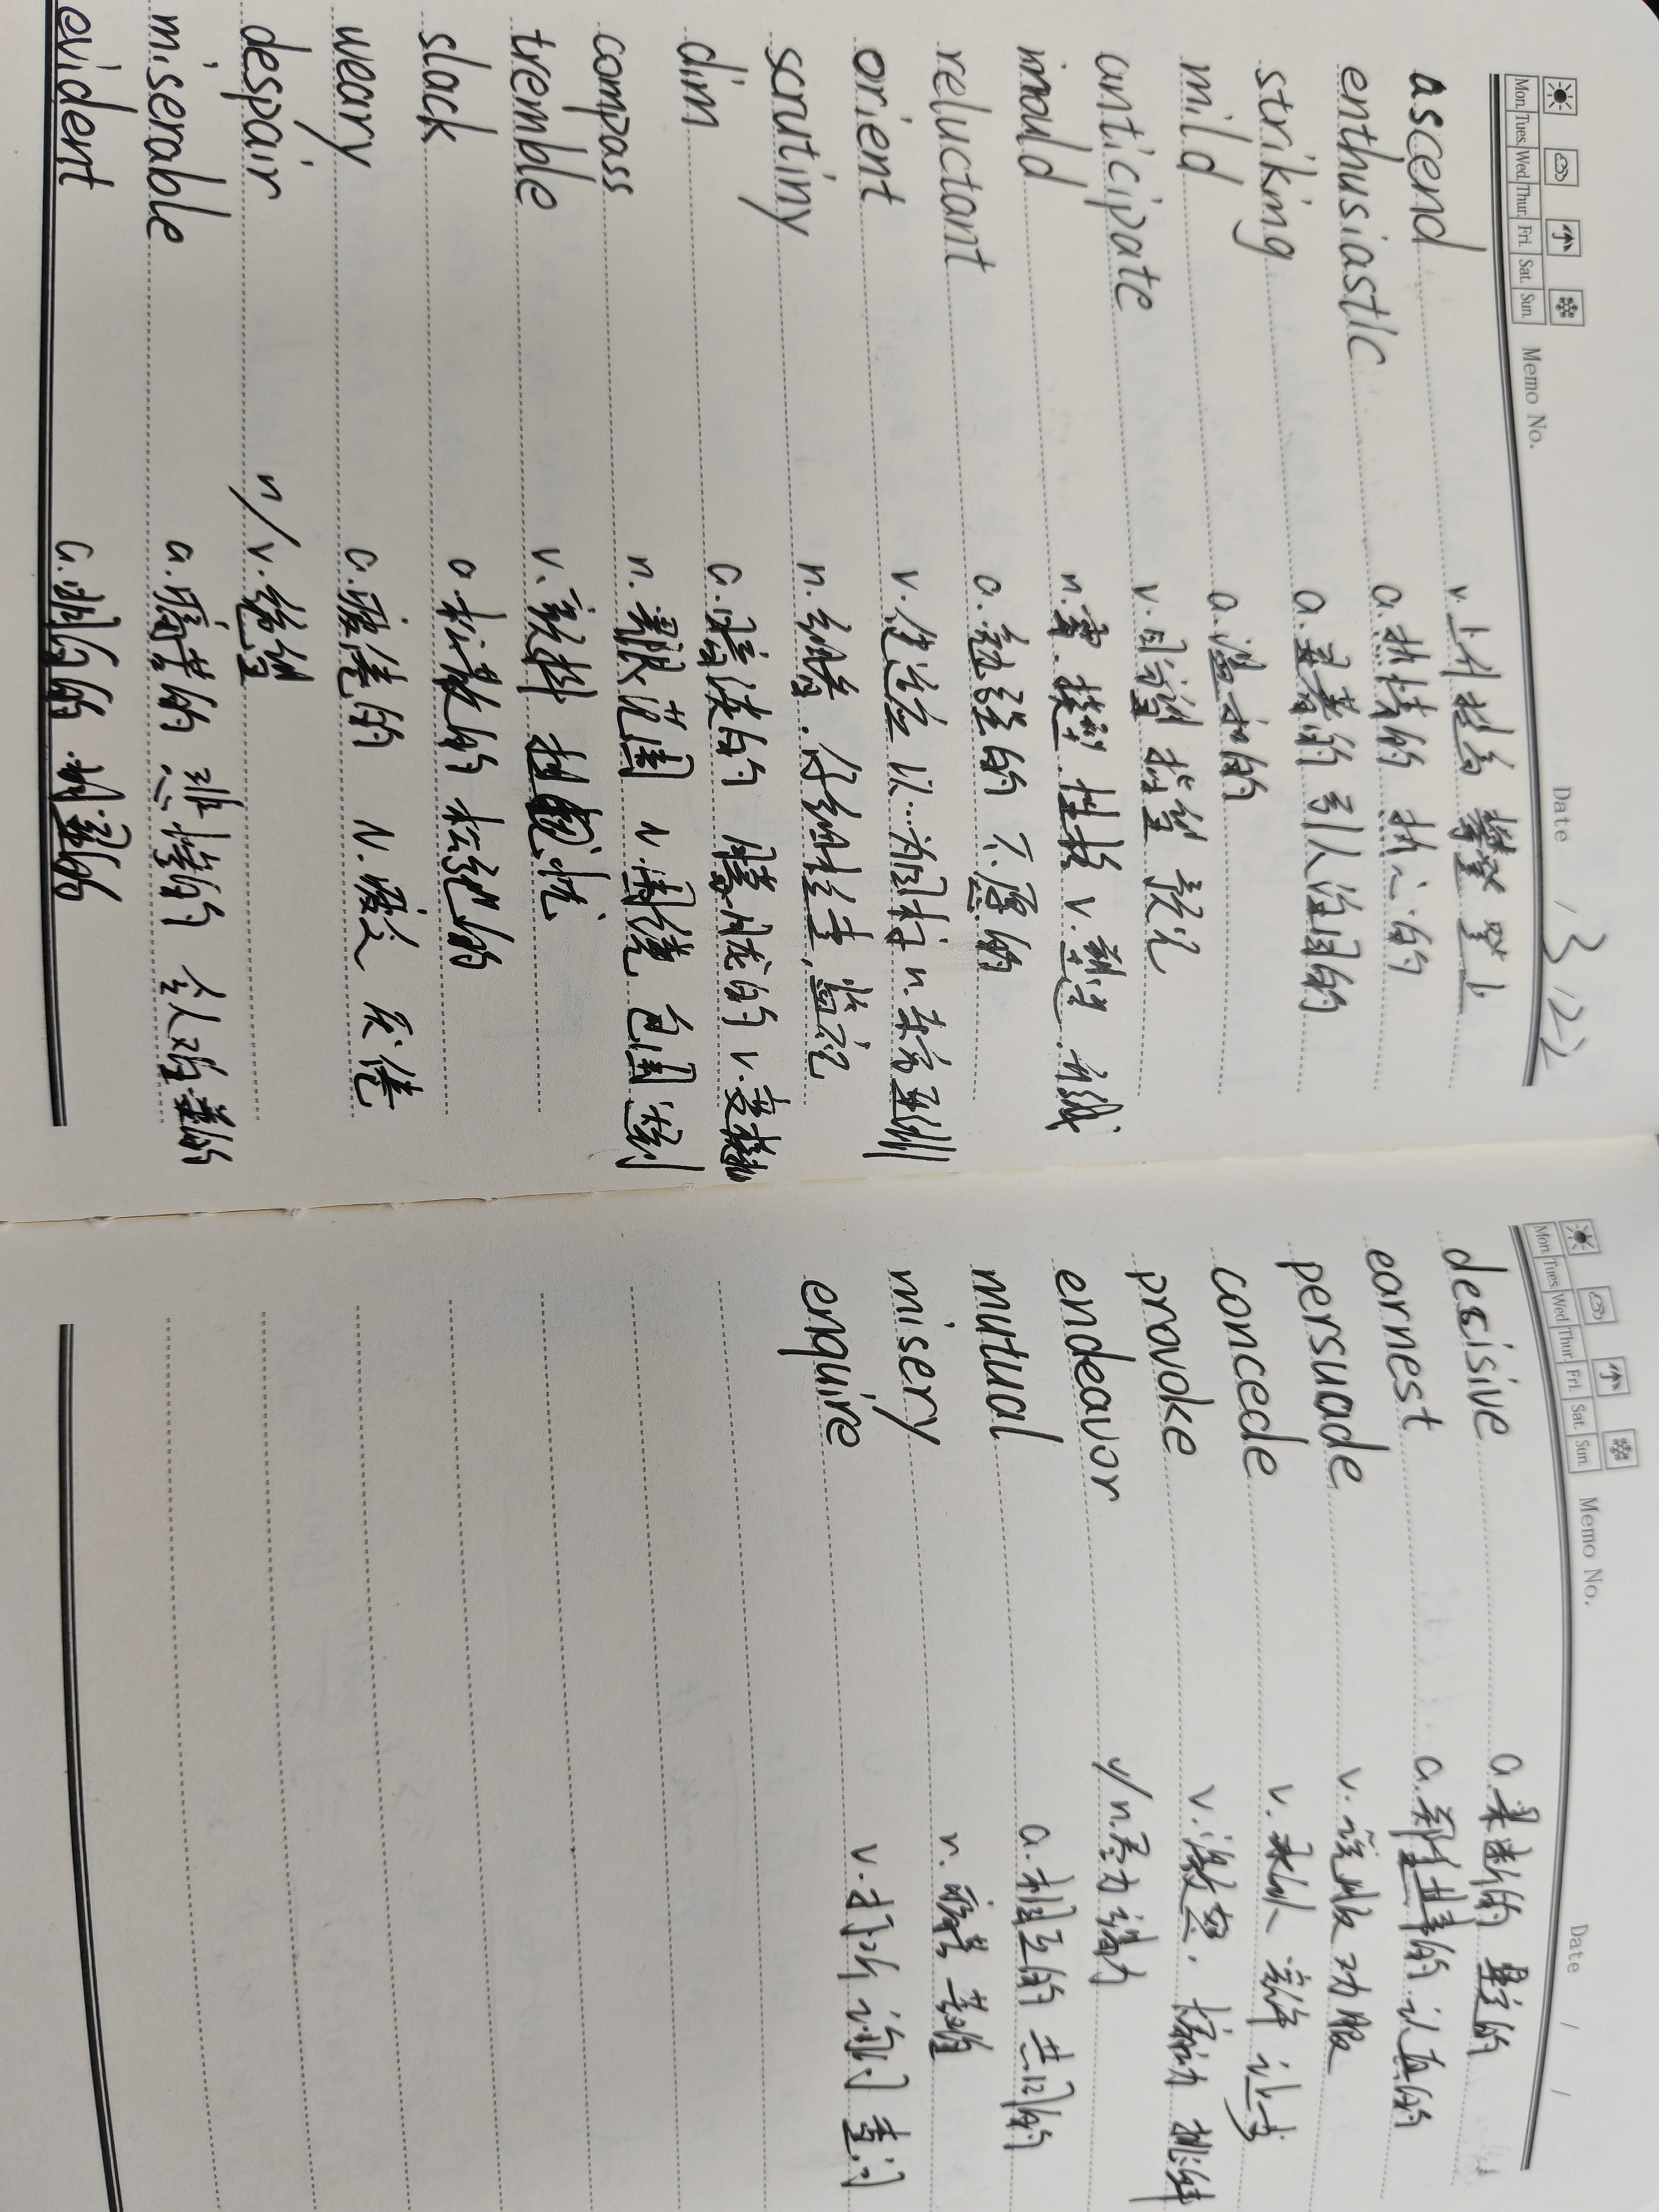 Mon. Tues. Wed. Thur. Fri. Sat. Sun. Memo No. Date / 3 / 22
ascend v.上升 提高 攀登 登上
enthusiastic a.热情的 热心的
striking a.显著的 引人注目的
mild a.温和的
anticipate v.期望 指望 预见
mould n.霉.模型.性格 v.塑造.
reluctant a.勉强的 不愿的
orient v.使适应 以…为目标 n.东方
scrutiny n.细看.仔细检查,监视
dim a.暗淡的 朦胧的 v.变
compass n.界限 范围 n.围绕 包围
trembl​e v.颤抖 担忧
slack a.松散的 松弛的
weary a.疲倦的 v.疲乏 厌倦
despair n/v.绝望
miserable a.痛苦的 悲惨的 令人难
evident a.明白的 明显的
Mon. Tues. Wed. Thur. Fri. Sat. Sun. Memo No. Date / /
decisive a.果断的 坚定的
earnest a.郑重其事的 认真的
persuade v.说服 劝服
concede v.承认 容许 让步
provoke v.激怒. 挑衅
endeavor v/n.尽力 竭力
mutual a.相互的 共同的
misery n.痛苦 苦难
enquire v.打听 询问 查问